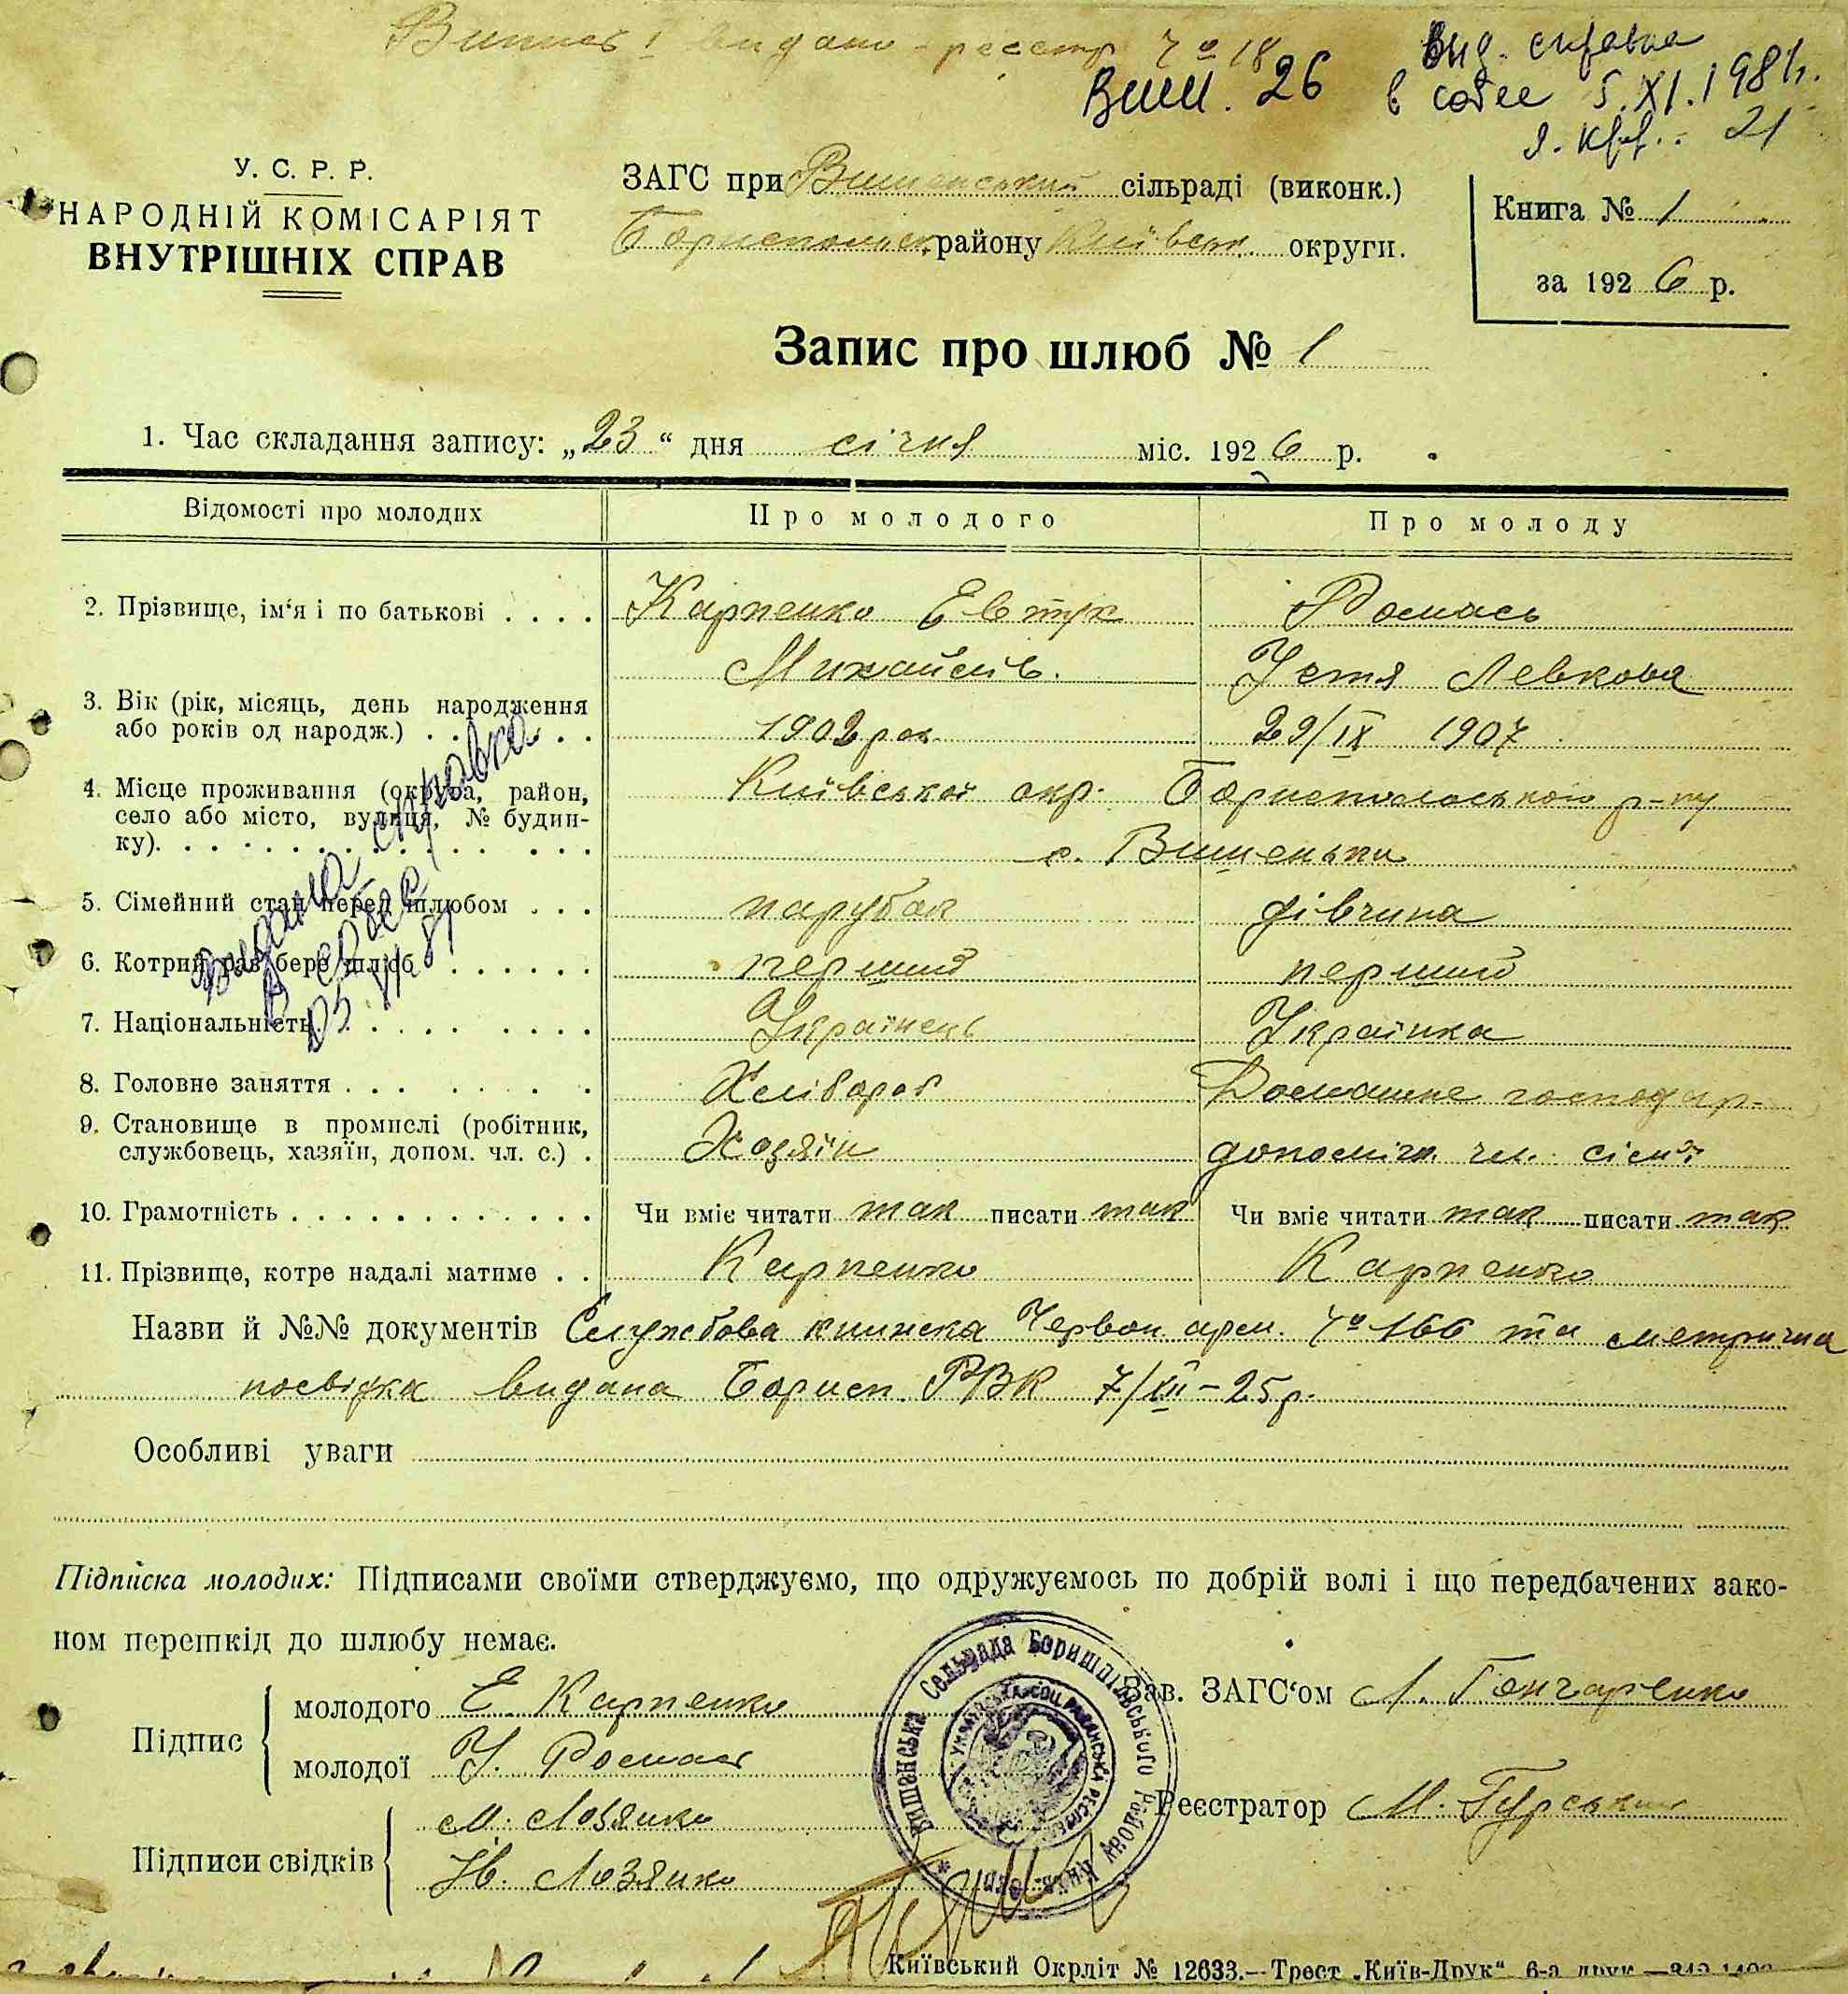 видано реєстр № 18
Виш. 26
Вид. справка
в собес 5.XI.1981г.
21
У. С. Р. Р.
НАРОДНІЙ КОМІСАРІЯТ
ВНУТРІШНІХ СПРАВ
ЗАГС при Вишенський сільраді (виконк.)
Бориспольск. району Київськ. округи.
Книга № 1
за 1926 р.
Запис про шлюб № 1
1. Час складання запису: „23“ дня січня міс. 1926 р.
Відомості про молодих
Про молодого
Про молоду
2. Прізвище, ім‘я і по батькові . . . .
Карпенко Евтух
Михайлів.
Ромась
Устя Левкова
3. Вік (рік, місяць, день народження
або років од народж.) . . . . . .
1902 рок
29/IX 1907
4. Місце проживання (округа, район,
село або місто, вулиця, № будин-
ку). . . . . . . . . . . . . .
Київської окр. Бориспольського р-ну
с. Вишеньки
5. Сімейний стан перед шлюбом . . .
парубок
дівчина
6. Котрий раз бере шлюб . . . . . .
перший
перший
7. Національність. . . . . . . . .
Українець
Українка
8. Головне заняття . . . . . . .
Хлібороб
Домашнє господар.
9. Становище в промислі (робітник,
службовець, хазяїн, допом. чл. с.) .
Хозяїн
допоміж. чл. сім'ї
10. Грамотність . . . . . . . . . . . .
Чи вміє читати так писати так
Чи вміє читати так писати так
11. Прізвище, котре надалі матиме . .
Карпенко
Карпенко
видана справка
в собес
Назви й №№ документів Службова книжка Червон арм. № 166 та метрична
посвідка видана Борисп. РВК 7/XII-25р.
Особливі уваги
Підписка молодих: Підписами своїми стверджуємо, що одружуємось по добрій волі і що передбачених зако-
ном перешкід до шлюбу немає.
Підпис
молодого Е. Карпенко
молодої У. Ромась
Підписи свідків
М. Лозянко
Н. Лозянко
Вишенська Сельрада Боришпільського Району Київ. Окр.
Українська Соц. Радянська Республ.
Зав. ЗАГС‘ом Л. Гончаренко
Реєстратор М. Гурський
Київський Окрліт № 12633.—Трест „Київ-Друк“ 6-а друк.